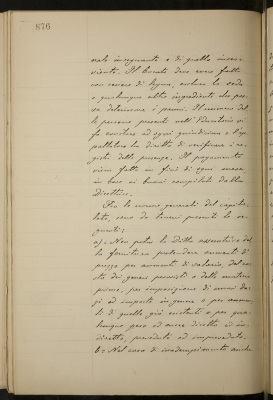 876
nale insegnante e di quello inser-
viente. Il bucato deve essere fatto
con cenere di legna, esclusa la soda
o qualunque altro ingrediente che pos-
sa deteriorare i panni. Il numero del-
le persone presenti nell'Educatorio si
fa ascendere ad ogni quindicina e l'ap-
paltatore ha diritto di verificare i re-
gistri delle presenze. Il pagamento
viene fatto in fine di ogni mese
in base ai buoni compilati dalla
Direttrice.
Fra le norme generali del capito-
lato, sono da tenersi presenti le se-
guenti:
a) = Non potrà la Ditta assuntrice del-
la fornitura pretendere aumenti di
prezzo per aumento di salario, del co-
sto dei generi provvisti o delle materie
prime, per imposizione di nuovi da-
zi ed imposte in genere o per aumen-
ti di quelle già esistenti o per qua-
lunque peso od onere diretto od in-
diretto, preveduto od impreveduto.
b = Nel caso di inadempimento anche